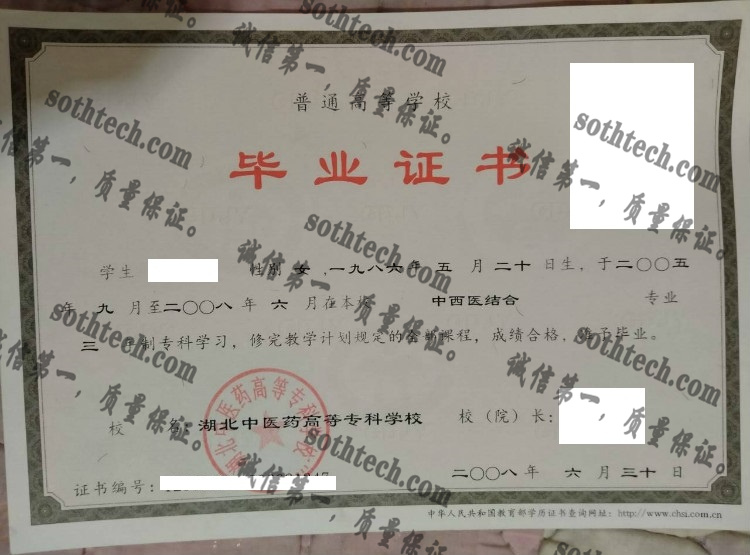 普通高等学校
毕业证书
学生 性别 女 ,一九八六年 五 月 二十 日生，于二〇〇五
年 九 月至二〇〇八年 六 月在本校 中西医结合 专业
三 年制专科学习，修完教学计划规定的全部课程，成绩合格，准予毕业。
校 名：湖北中医药高等专科学校 校（院）长：
二〇〇八年 六 月 三十 日
证书编号：
中华人民共和国教育部学历证书查询网址：http://www.chsi.com.cn
湖北中医药高等专科学校
sothtech.com
诚信第一，质量保证。
sothtech.com
诚信第一，质量保证。
sothtech.com
诚信第一，质量保证。
sothtech.com
诚信第一，质量保证。
sothtech.com
诚信第一，质量保证。
sothtech.com
诚信第一，质量保证。
sothtech.com
诚信第一，质量保证。